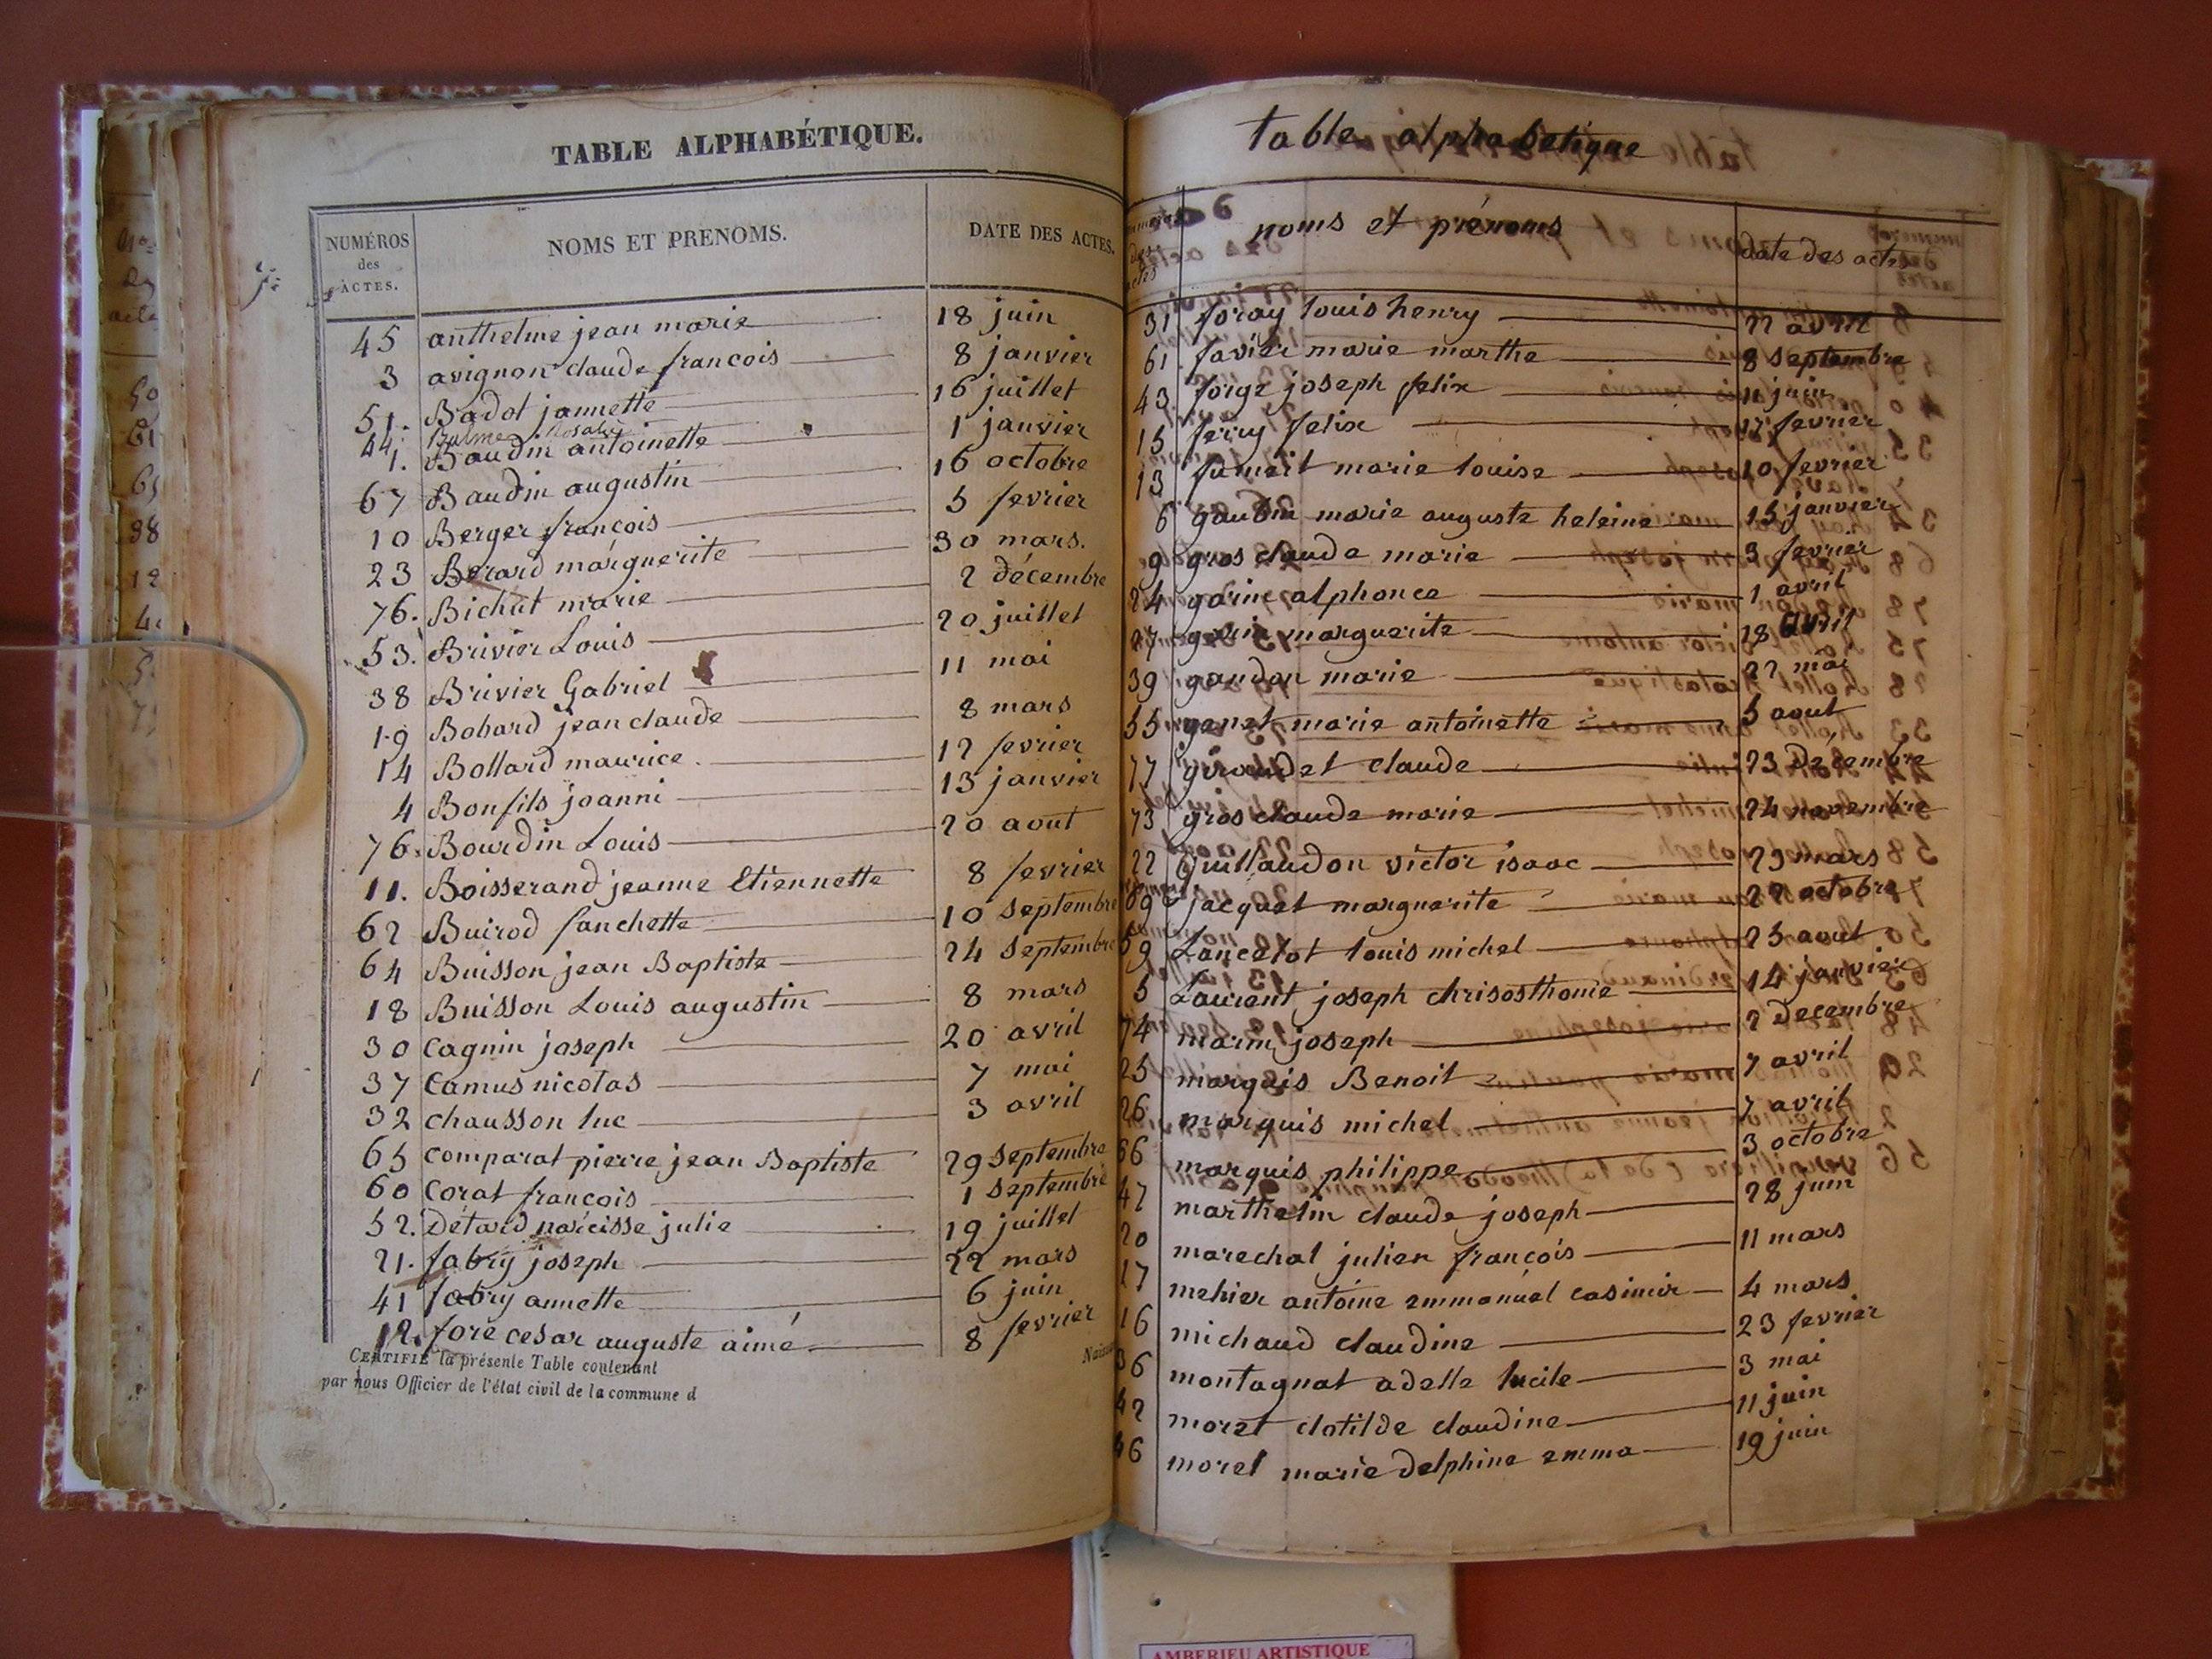 TABLE ALPHABÉTIQUE.
NUMÉROS des ACTES. NOMS ET PRENOMS. DATE DES ACTES.
45 anthelme jean marie 18 juin
3 avignon claude francois 8 janvier
51. Badol jannette 16 juillet
44. Balme Rosalie
1. Baudin antoinette 1 janvier
67 Baudin augustin 16 octobre
10 Berger françois 5 fevrier
23 Berard marguerite 30 mars.
76. Bichat marie 2 décembre
53. Brivier Louis 20 juillet
38 Brivier Gabriel 11 mai
19 Bobard jean claude 8 mars
14 Bollard maurice. 12 fevrier
4 Bonfils joanni 13 janvier
76. Bourdin Louis 20 aout
11. Boisserand jeanne Etiennette 8 fevrier
62 Buirod fanchette 10 septembre
64 Buisson jean Baptiste 24 septembre
18 Buisson Louis augustin 8 mars
30 Cagnin joseph 20 avril
37 Camus nicolas 7 mai
32 chausson luc 3 avril
65 Comparat pierre jean Baptiste 29 septembre
60 Corat francois 1 septembre
52. Détard narcisse julie 19 juillet
21. fabry joseph 22 mars
41 fabry annette 6 juin
12. foré cesar auguste aimé 8 fevrier
CERTIFIÉ la présente Table contenant
par nous Officier de l'état civil de la commune d
table alphabetique
des actes noms et prénoms date des actes
31 foray louis henry 22 avril
61 favier marie marthe 8 septembre
43 forge joseph felix 11 juin
15 ferry felix 17 fevrier
13 marie louise 10 fevrier
6 gaudin marie auguste heleine 15 janvier
9 gros claude marie 3 fevrier
24 garin alphonce 1 avril
27 garin marguerite 18 avril
39 gaudon marie 22 mai
55 genet marie antoinette 5 aout
77 giroudet claude 23 Décembre
73 gros claude marie 24 novembre
22 Guillaudon victor isaac 23 mars
69 jacquet marguerite 22 octobre
59 Lancelot louis michel 25 aout
5 Laurent joseph chrisosthome 14 janvier
74 marin joseph 2 decembre
25 marquis Benoit 7 avril
26 marquis michel 7 avril
66 marquis philippe 3 octobre
47 marthelin claude joseph 28 juin
20 marechal julien françois 11 mars
17 mehier antoine emmanuel casimir 4 mars
16 michaud claudine 23 fevrier
36 montagnat adelle lucile 3 mai
42 moret clotilde claudine 11 juin
46 morel marie delphine emma 19 juin
AMBERIEU ARTISTIQUE